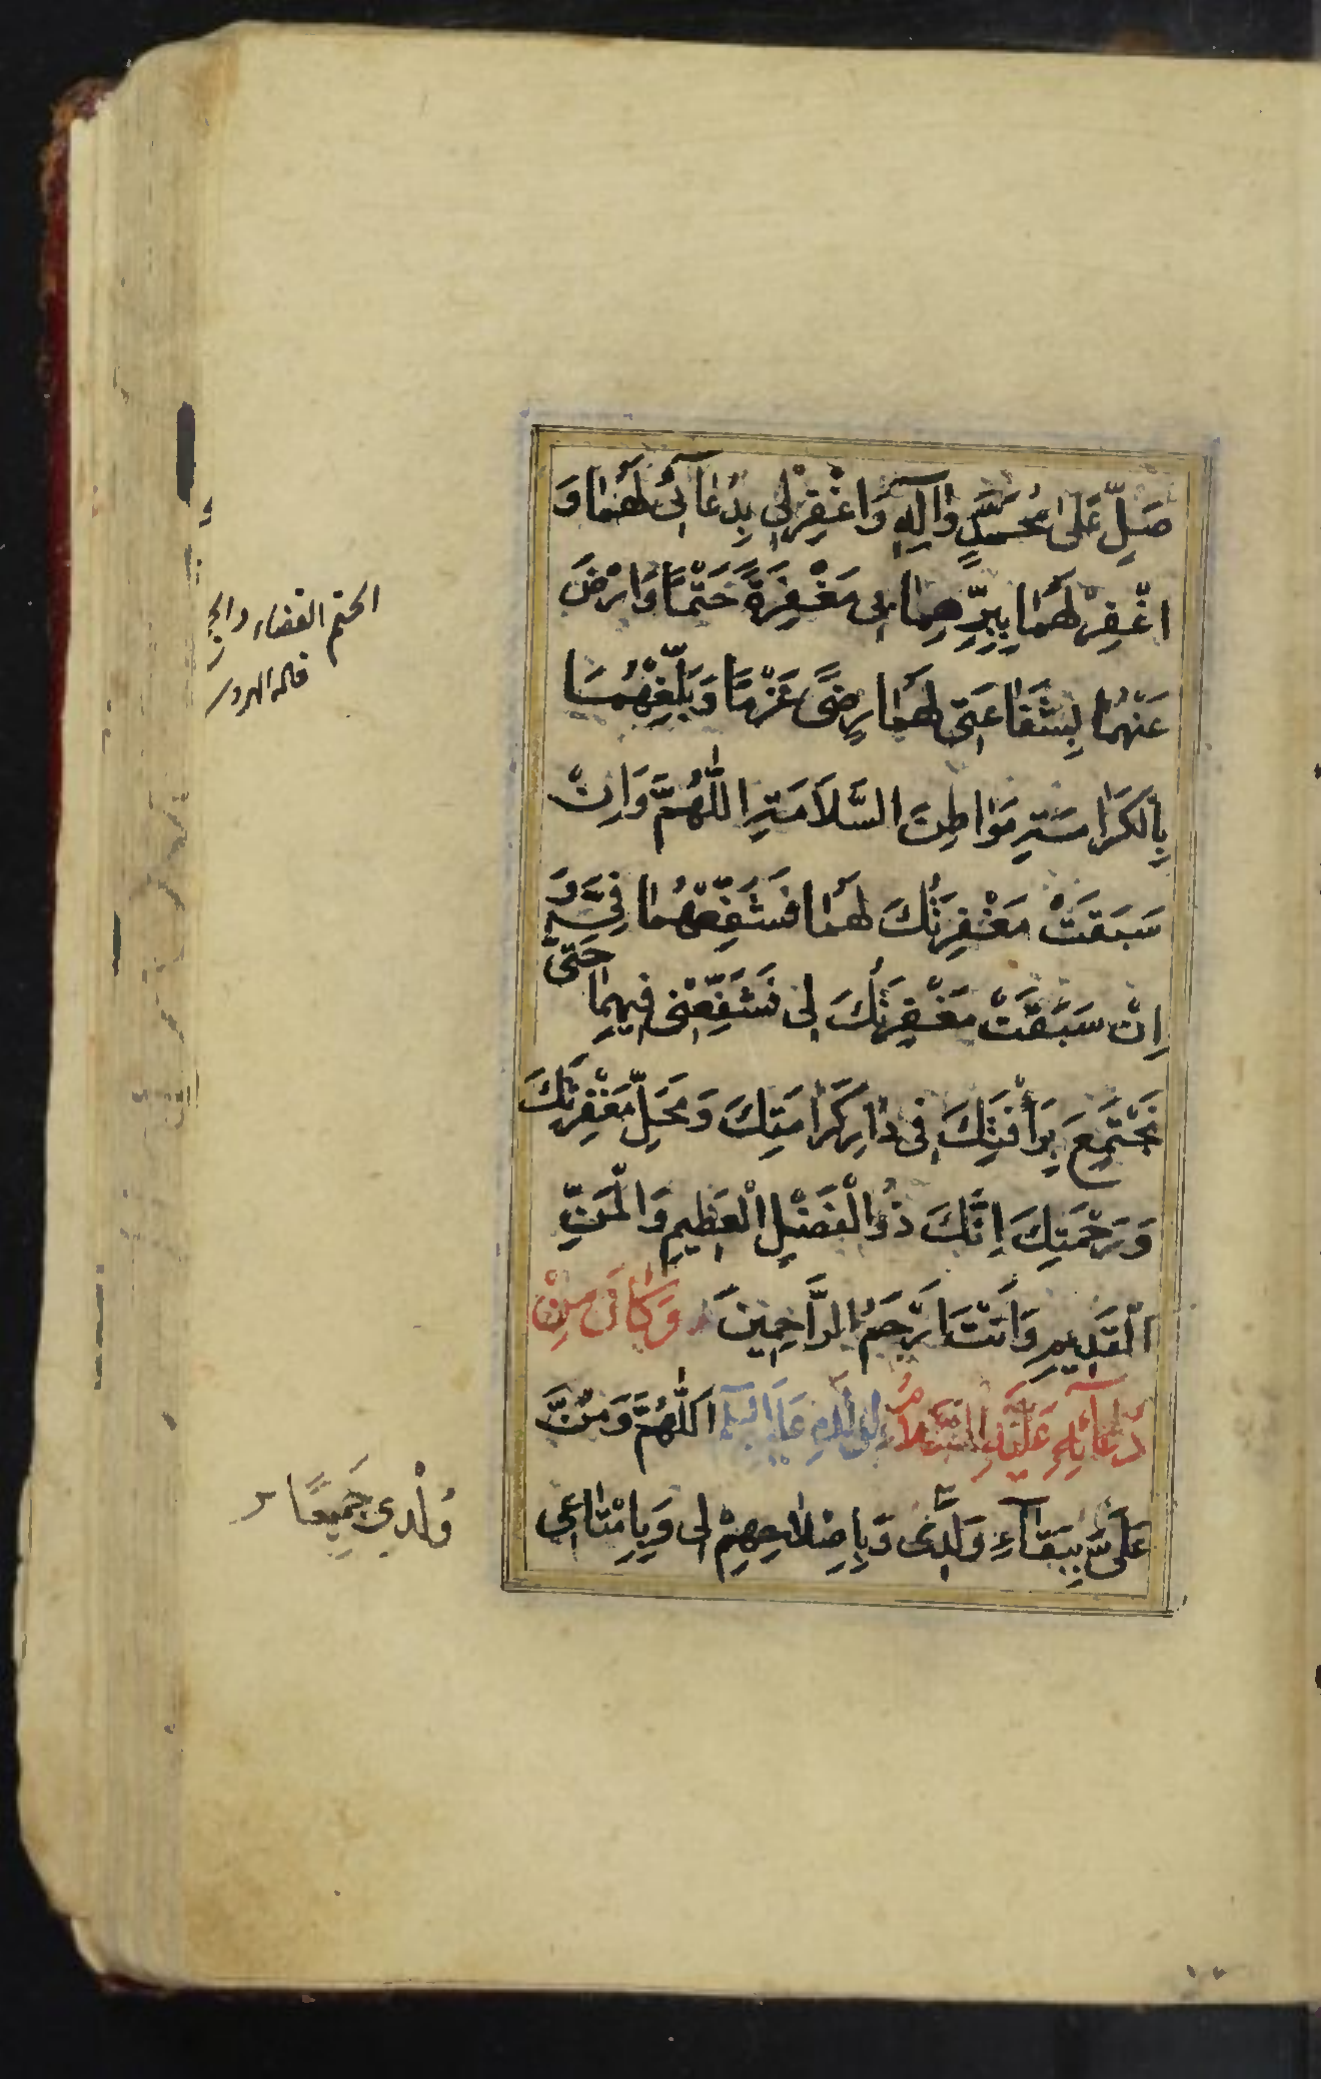 صَلِّ عَلَىٰ مُحَمَّدٍ وَآلِهِ وَاغْفِرْ لِي بِدُعَآئِي لَهُمَا وَ
اغْفِرْ لَهُمَا بِبِرِّهِمَا بِي مَغْفِرَةً حَتْمًا وَارْضَ
عَنْهُمَا بِشَفَاعَتِي لَهُمَا رِضًى عَزْمًا وَبَلِّغْهُمَا
بِالْكَرَامَةِ مَوَاطِنَ السَّلَامَةِ اللّٰهُمَّ وَاِنْ
سَبَقَتْ مَغْفِرَتُكَ لَهُمَا فَشَفِّعْهُمَا فِيَّ وَ
اِنْ سَبَقَتْ مَغْفِرَتُكَ لِي فَشَفِّعْنِي فِيهِمَا حَتّىٰ
نَجْتَمِعَ بِرَأْفَتِكَ فِي دَارِ كَرَامَتِكَ وَمَحَلِّ مَغْفِرَتِكَ
وَرَحْمَتِكَ اِنَّكَ ذُو الْفَضْلِ الْعَظِيمِ وَالْمَنِّ
الْقَدِيمِ وَاَنْتَ اَرْحَمُ الرَّاحِمِينَ وَكَانَ مِنْ
دُعَآئِهِ عَلَيْهِ السَّلَامُ لِوُلْدِهِ عَلَيْهِمُ السَّلَامُ اَللّٰهُمَّ وَمُنَّ
عَلَيَّ بِبَقَآءِ وَلَدِي وَبِاِصْلَاحِهِمْ لِي وَبِاِمْتَاعِي
الحتم القضاء
وُلْدِي جَمِيعًا